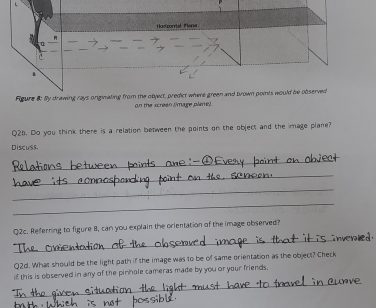 Horizontal Plane
Figure 8: By drawing rays originating from the object, predict where green and brown points would be observed
on the screen (image plane).
Q2b. Do you think there is a relation between the points on the object and the image plane?
Discuss.
Relations between points are:- ① Every point on object
have its corresponding point on the screen.
Q2c. Referring to figure 8, can you explain the orientation of the image observed?
The orientation of the observed image is that it is inversed.
Q2d. What should be the light path if the image was to be of same orientation as the object? Check
if this is observed in any of the pinhole cameras made by you or your friends.
In the given situation the light must have to travel in curve
path. Which is not possible.